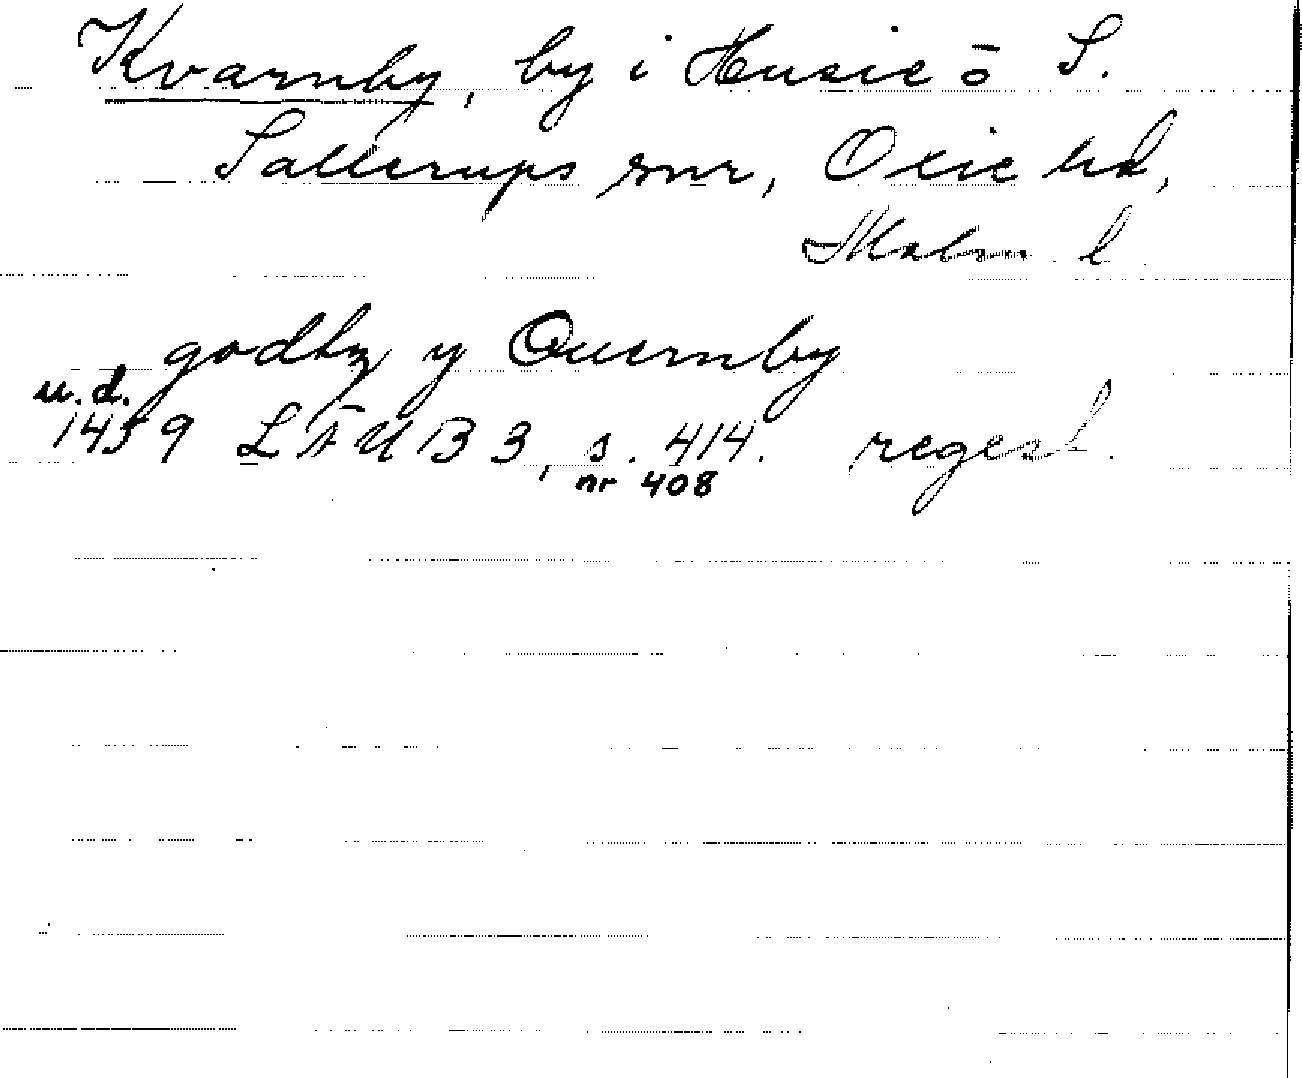 Kvarnby, by i Husie o S.
Sallerups snr, Oxie hd,
Malm l
godhz y Quernby
u.d.
1459 LÄUB 3, s. 414. regest.
nr 408